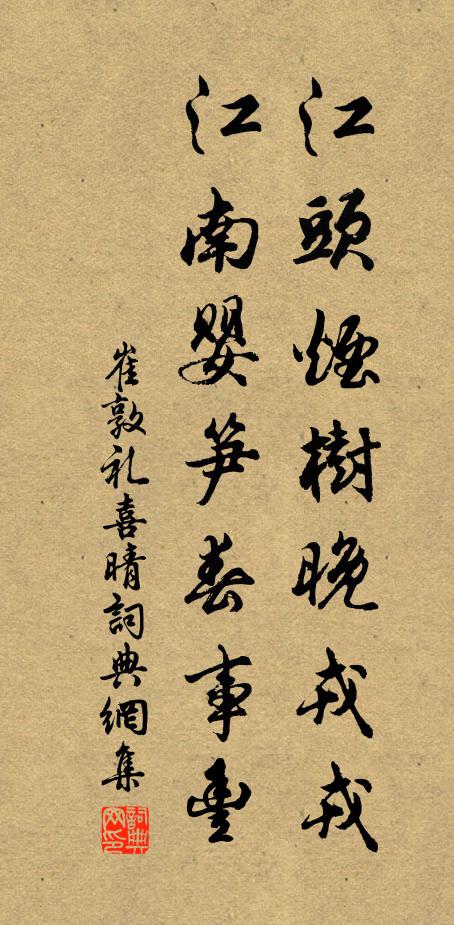 江頭煙樹晚戎戎
江南嬰笋春事豐
崔敦礼喜晴詞典網集
詞典網印